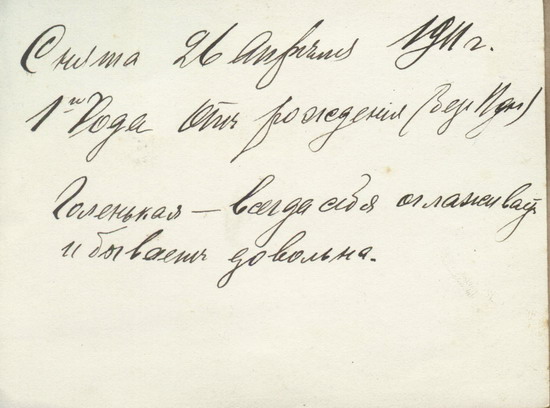 Снята 26 Апрѣля 1911 г.
1го Года Отъ рожденія
Голенькая — всегда себя оглаживаетъ
и бываетъ довольна.